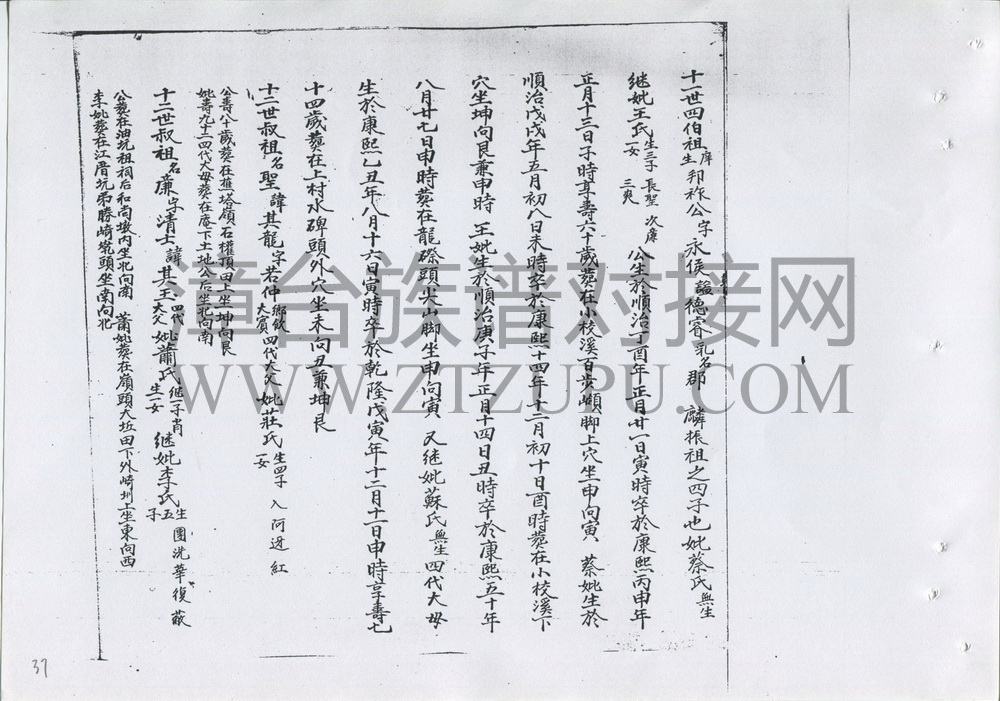 十一世四伯祖庠生邦祚公字永侯諡德睿乳名郡　麟振祖之四子也妣蔡氏無生
继妣王氏生三子長聖次廉三爽一女　公生於順治丁酉年正月廿一日寅時卒於康熙丙申年
正月十三日子時享壽六十歲葬在小校溪百步嶺脚上穴坐申向寅　蔡妣生於
順治戊戌年五月初八日未時卒於康熙十四年十二月初十日酉時葬在小校溪下
穴坐坤向艮兼申時　王妣生於順治庚子年正月十四日丑時卒於康熙五十年
八月廿七日申時葬在龍磜頭尖山脚坐申向寅　又继妣蘇氏無生四代大母
生於康熙乙丑年八月十六日寅時卒於乾隆戊寅年十二月十一日申時享壽七
十四歲葬在上村水碑頭外穴坐未向丑兼坤艮
十二世叔祖名聖諱其龍字若仲鄉飲大賓四代大父妣莊氏生四子一女　入河迓紅
公壽八十歲葬在蕉塔嶺石權頂田上坐坤向艮
妣壽九十二四代大母葬在庵下土地公后坐北向南
十二世叔祖名廉字清士諱其玉四代大父妣蕭氏继一子肖生一女　继妣李氏生五子　團洗華復蔌
公葬在油坑祖祠后和尚墩内坐北向南　蕭妣葬在嶺頭大坵田下外崎圳上坐東向西
李妣葬在江厝坑弟勝崎崀頭坐南向北
37
漳台族谱对接网
WWW.ZTZUPU.COM